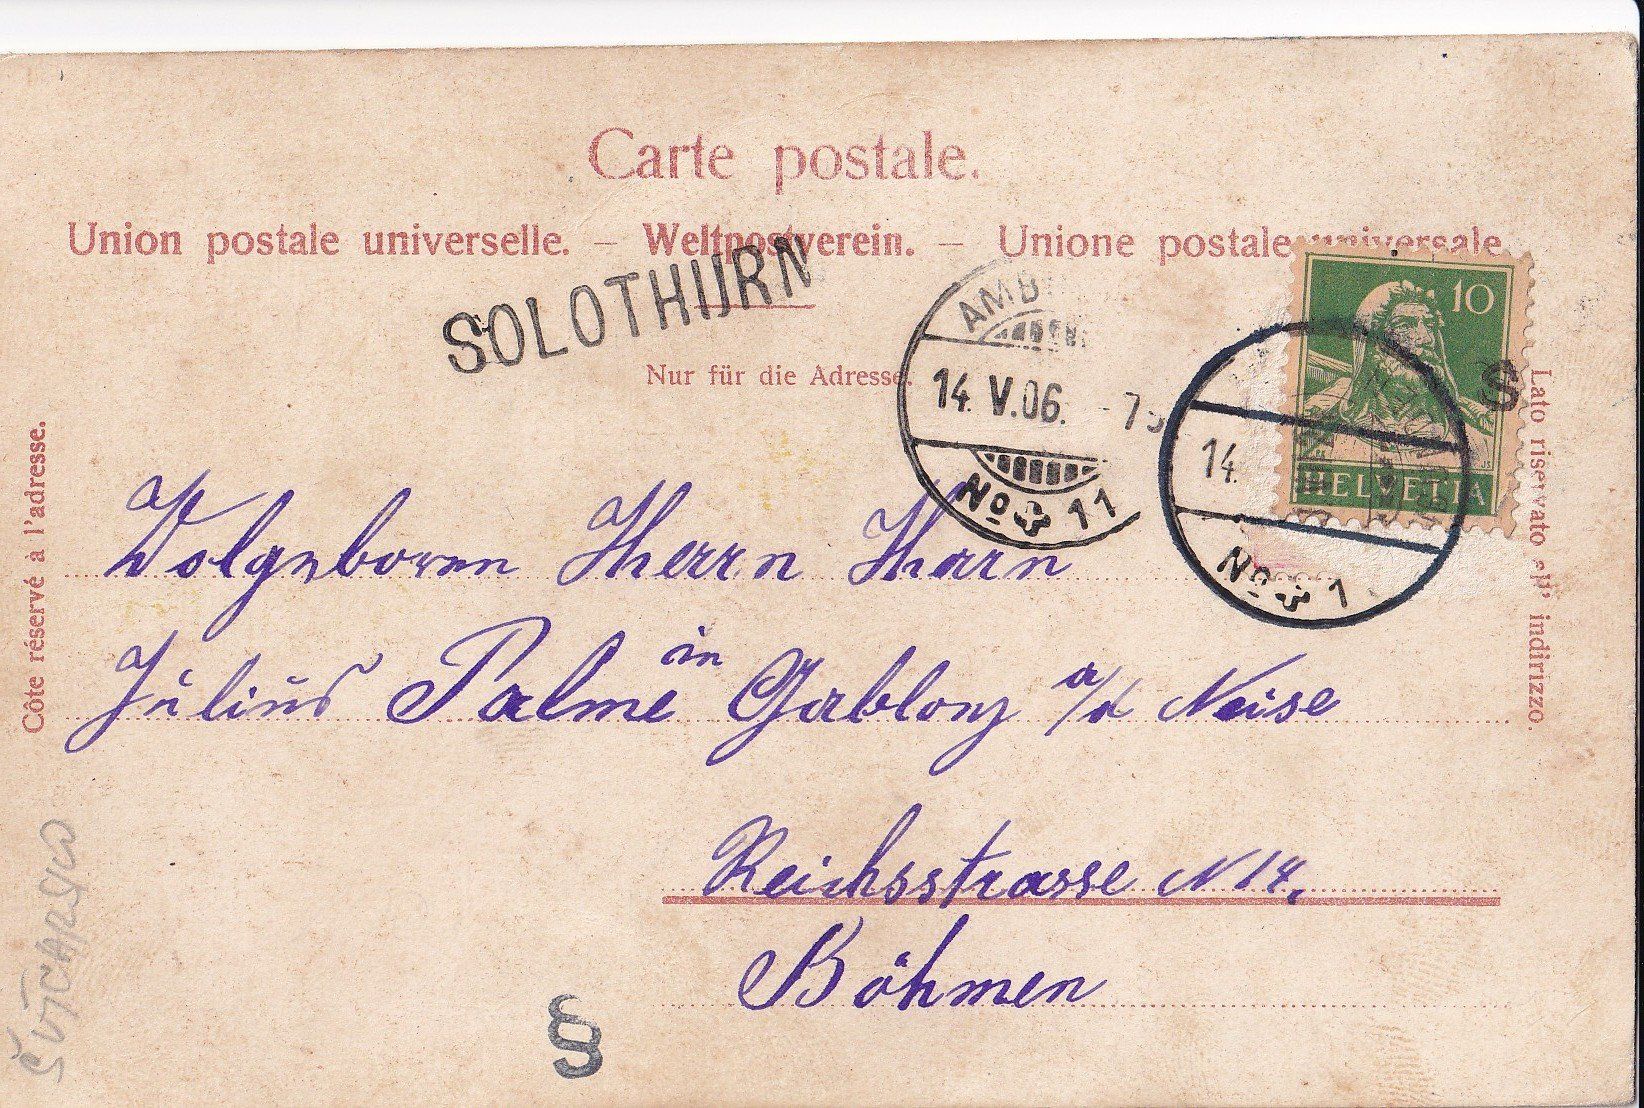 Carte postale.
Union postale universelle. – Weltpostverein. – Unione postale universale.
SOLOTHURN
Nur für die Adresse.
AMB
14. V. 06. - 7
No 11
10
HELVETIA
S
14.
No 1
Côte réservé à l'adresse.
Lato riservato all' indirizzo.
Wolgeboren Herrn Herrn
Julius Palme in Gablonz a/d Neise
Reichsstrasse N 14.
Böhmen
ŠVÝCARSKO
§